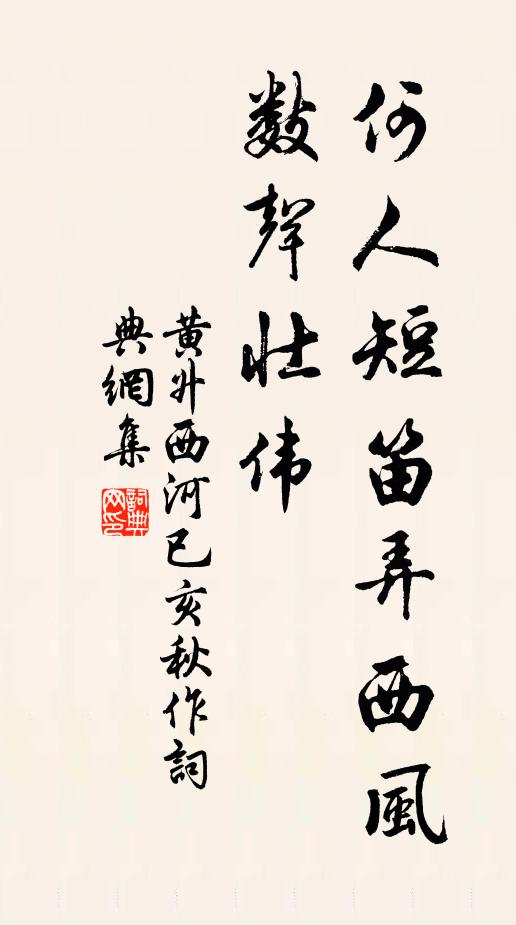 何人短笛弄西風
數聲壯伟
黄升西河已亥秋作詞
典網集
詞典網印